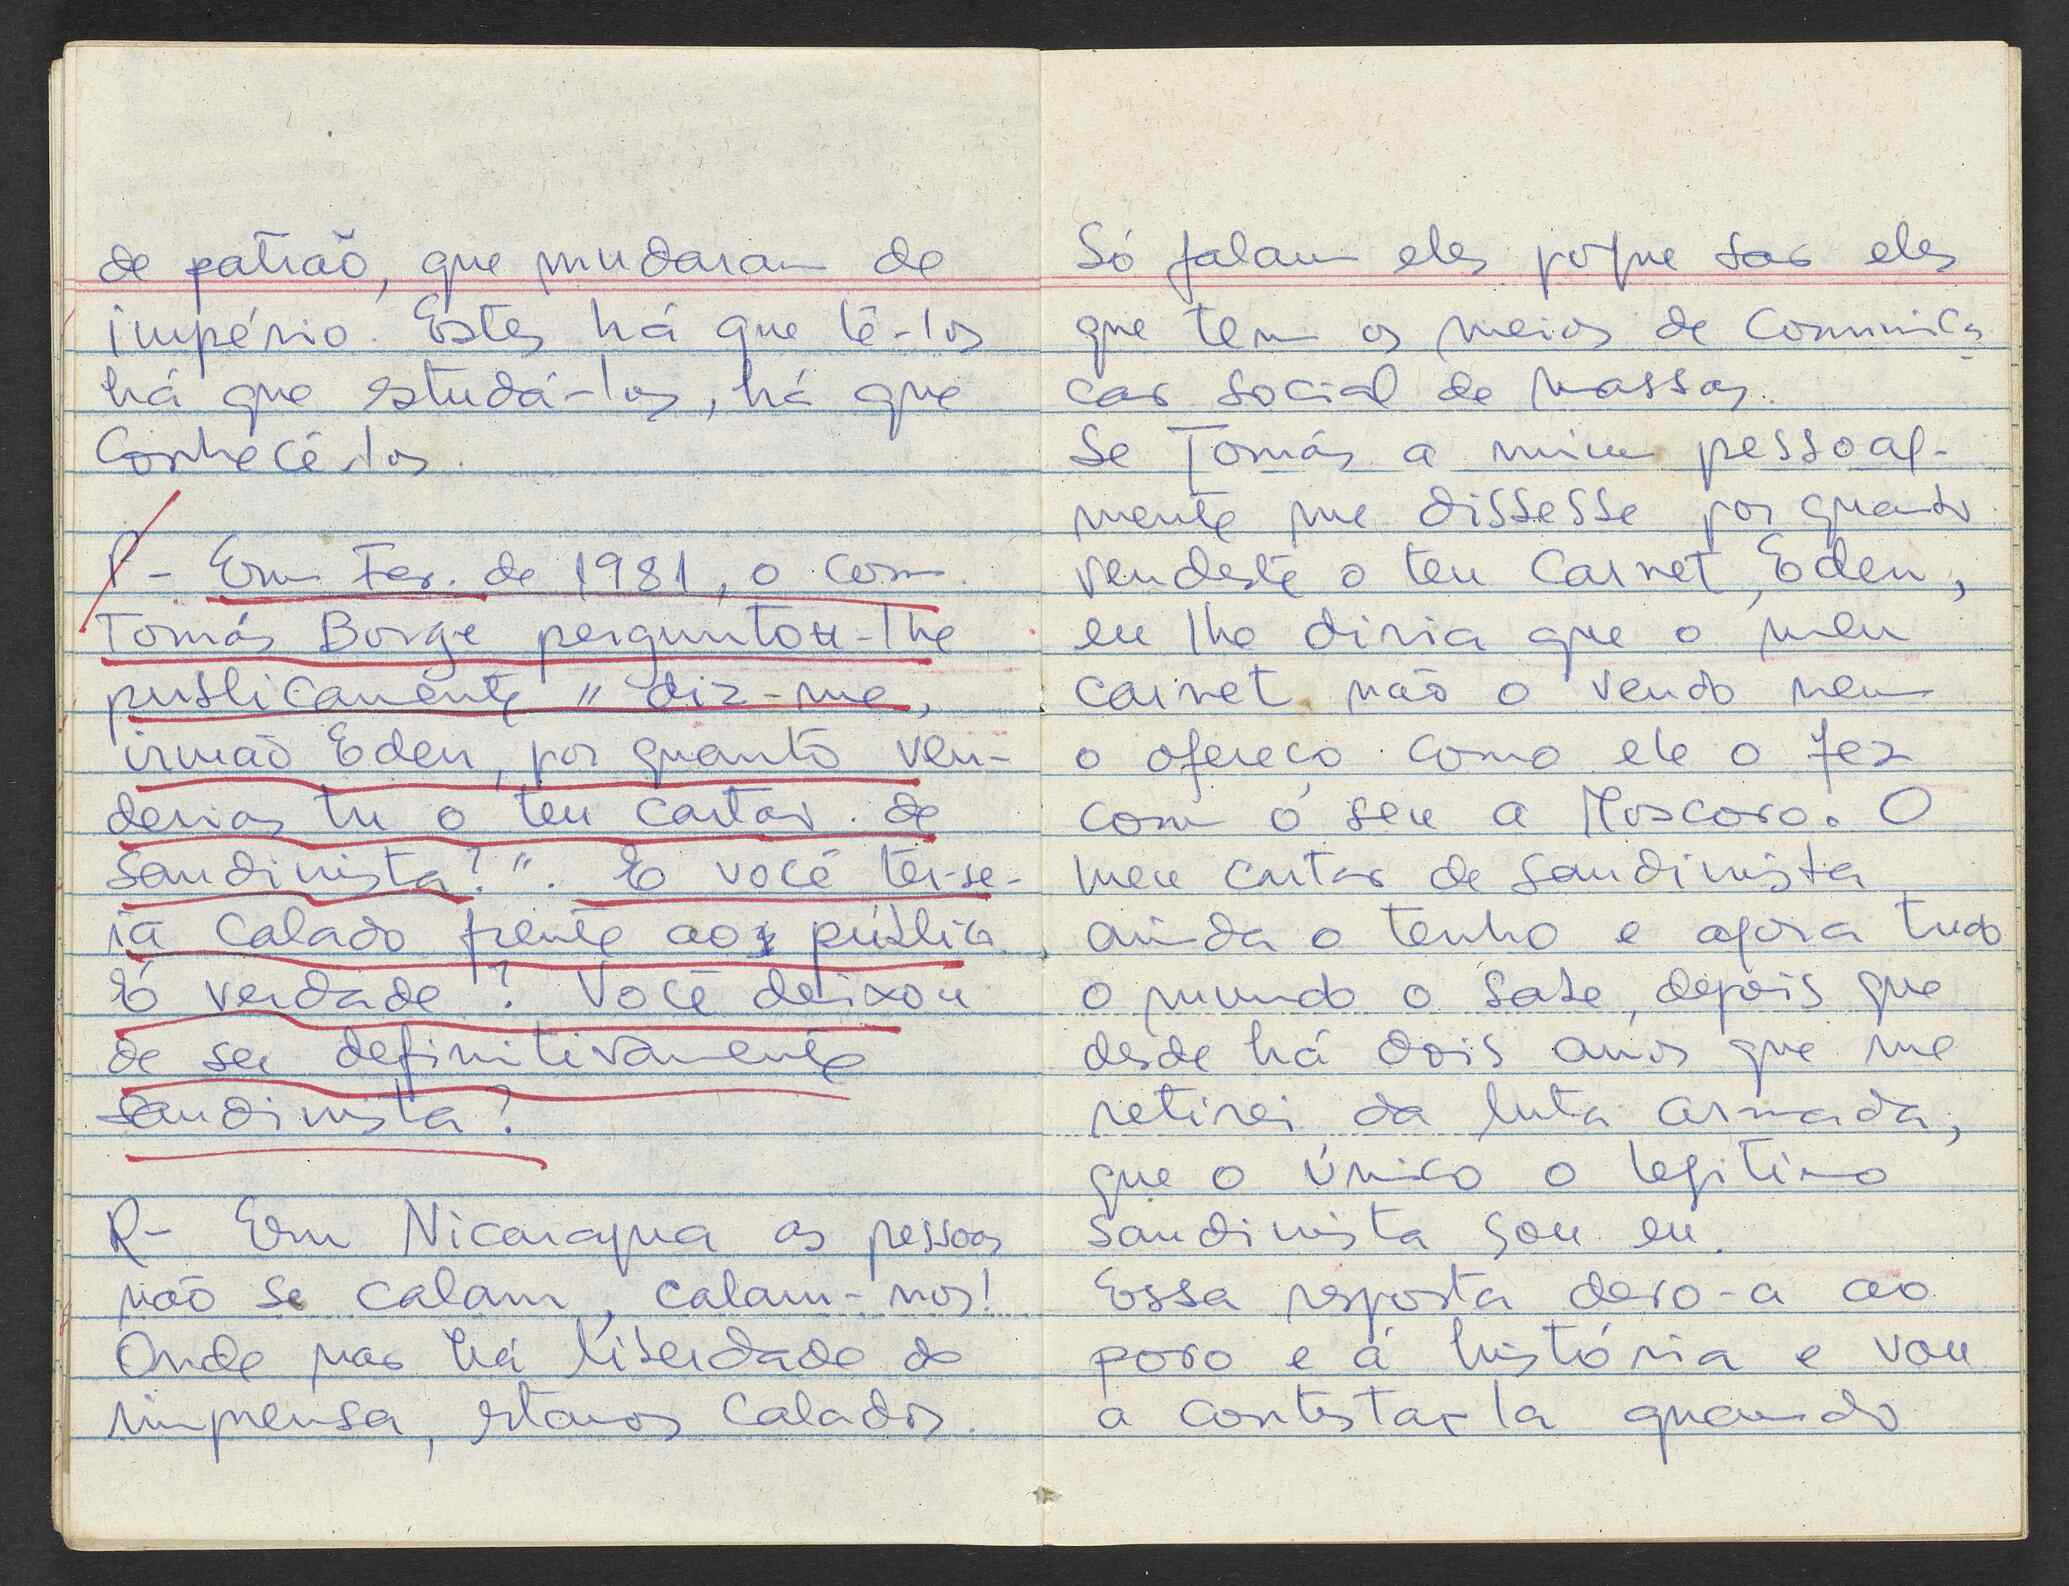 de patrão, que mudaram de
império. Estes há que tê-los
há que estudá-los, há que
conhecê-los.
P- Em Fev. de 1981, o com.
Tomás Borge perguntou-lhe
publicamente "diz-me,
irmão Eden, por quanto ven-
derias tu o teu cartão de
sandinista?". E você ter-se-
ia calado frente ao público.
É verdade? Você deixou
de ser definitivamente
sandinista?
R- Em Nicaragua as pessoas
não se calam, calam-nos!
Onde não há liberdade de
imprensa, estamos calados.
Só falam eles porque são eles
que tem os meios de comunica
ção social de massas.
Se Tomás a mim pessoal-
mente me dissesse por quanto
vendeste o teu carnet, Eden,
eu lhe diria que o meu
carnet não o vendo nem
o ofereço como ele o fez
com o seu a Moscovo. O
meu cartão de sandinista
ainda o tenho e agora tudo
o mundo o sabe, depois que
desde há dois anos que me
retirei da luta armada,
que o único o legitimo
sandinista sou eu.
Essa resposta devo-a ao
povo e á história e vou
a contestar-la quando